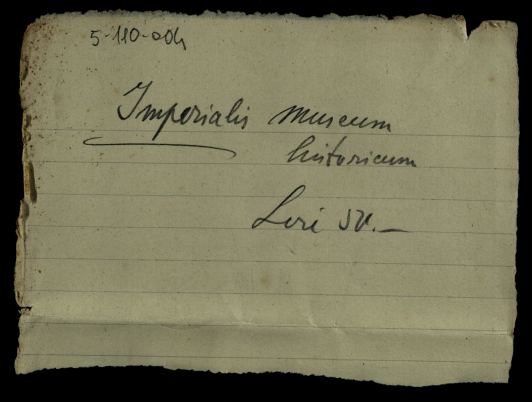 5-110-004
Imperialis Museum
historicum
Seri IV.—